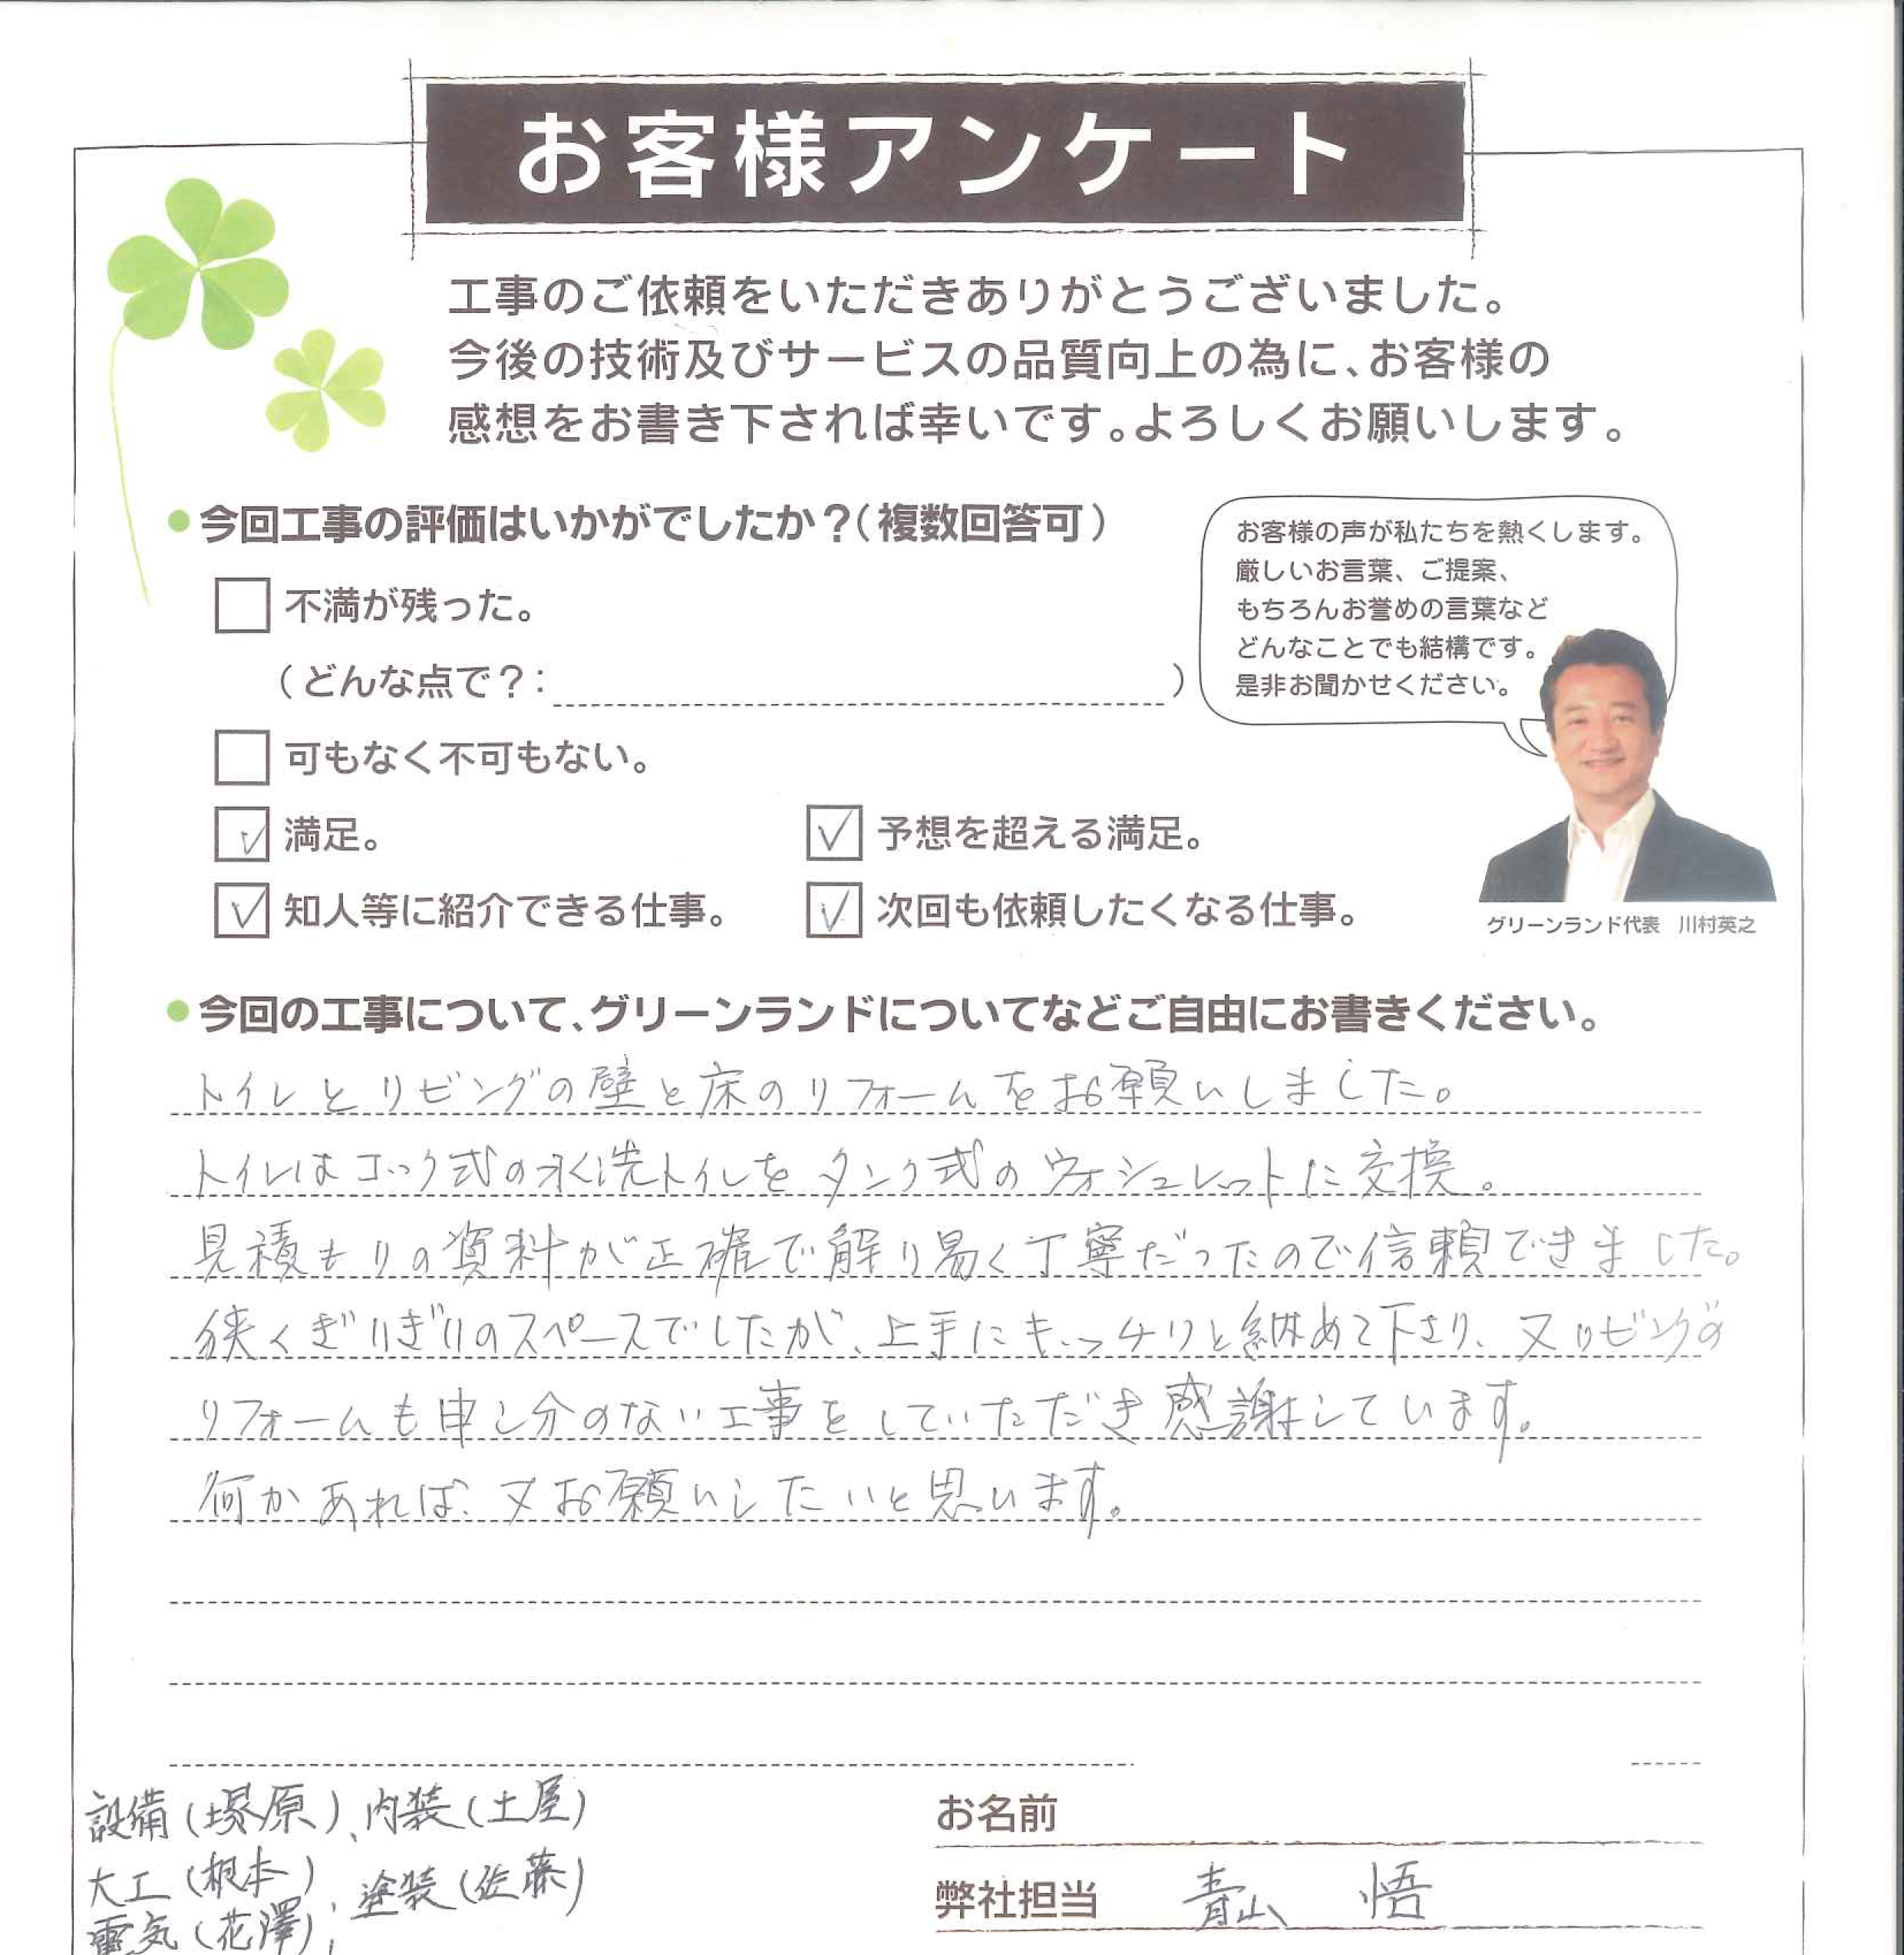 お客様アンケート
工事のご依頼をいただきありがとうございました。
今後の技術及びサービスの品質向上の為に、お客様の
感想をお書き下されば幸いです。よろしくお願いします。
●今回工事の評価はいかがでしたか？（複数回答可）
不満が残った。
（どんな点で？：　）
可もなく不可もない。
満足。　予想を超える満足。
知人等に紹介できる仕事。　次回も依頼したくなる仕事。
お客様の声が私たちを熱くします。
厳しいお言葉、ご提案、
もちろんお誉めの言葉など
どんなことでも結構です。
是非お聞かせください。
グリーンランド代表　川村英之
●今回の工事について、グリーンランドについてなどご自由にお書きください。
トイレとリビングの壁と床のリフォームをお願いしました。
トイレはコック式の水洗トイレをタンク式のウォシュレットに交換。
見積もりの資料が正確で解り易く丁寧だったので信頼できました。
狭くぎりぎりのスペースでしたが、上手にキッチリと納めて下さり、又リビングの
リフォームも申し分のない工事をしていただき感謝しています。
何かあれば、又お願いしたいと思います。
設備（塚原）、内装（土屋）
大工（根本）、塗装（佐藤）
電気（花澤）
お名前
弊社担当　青山　悟